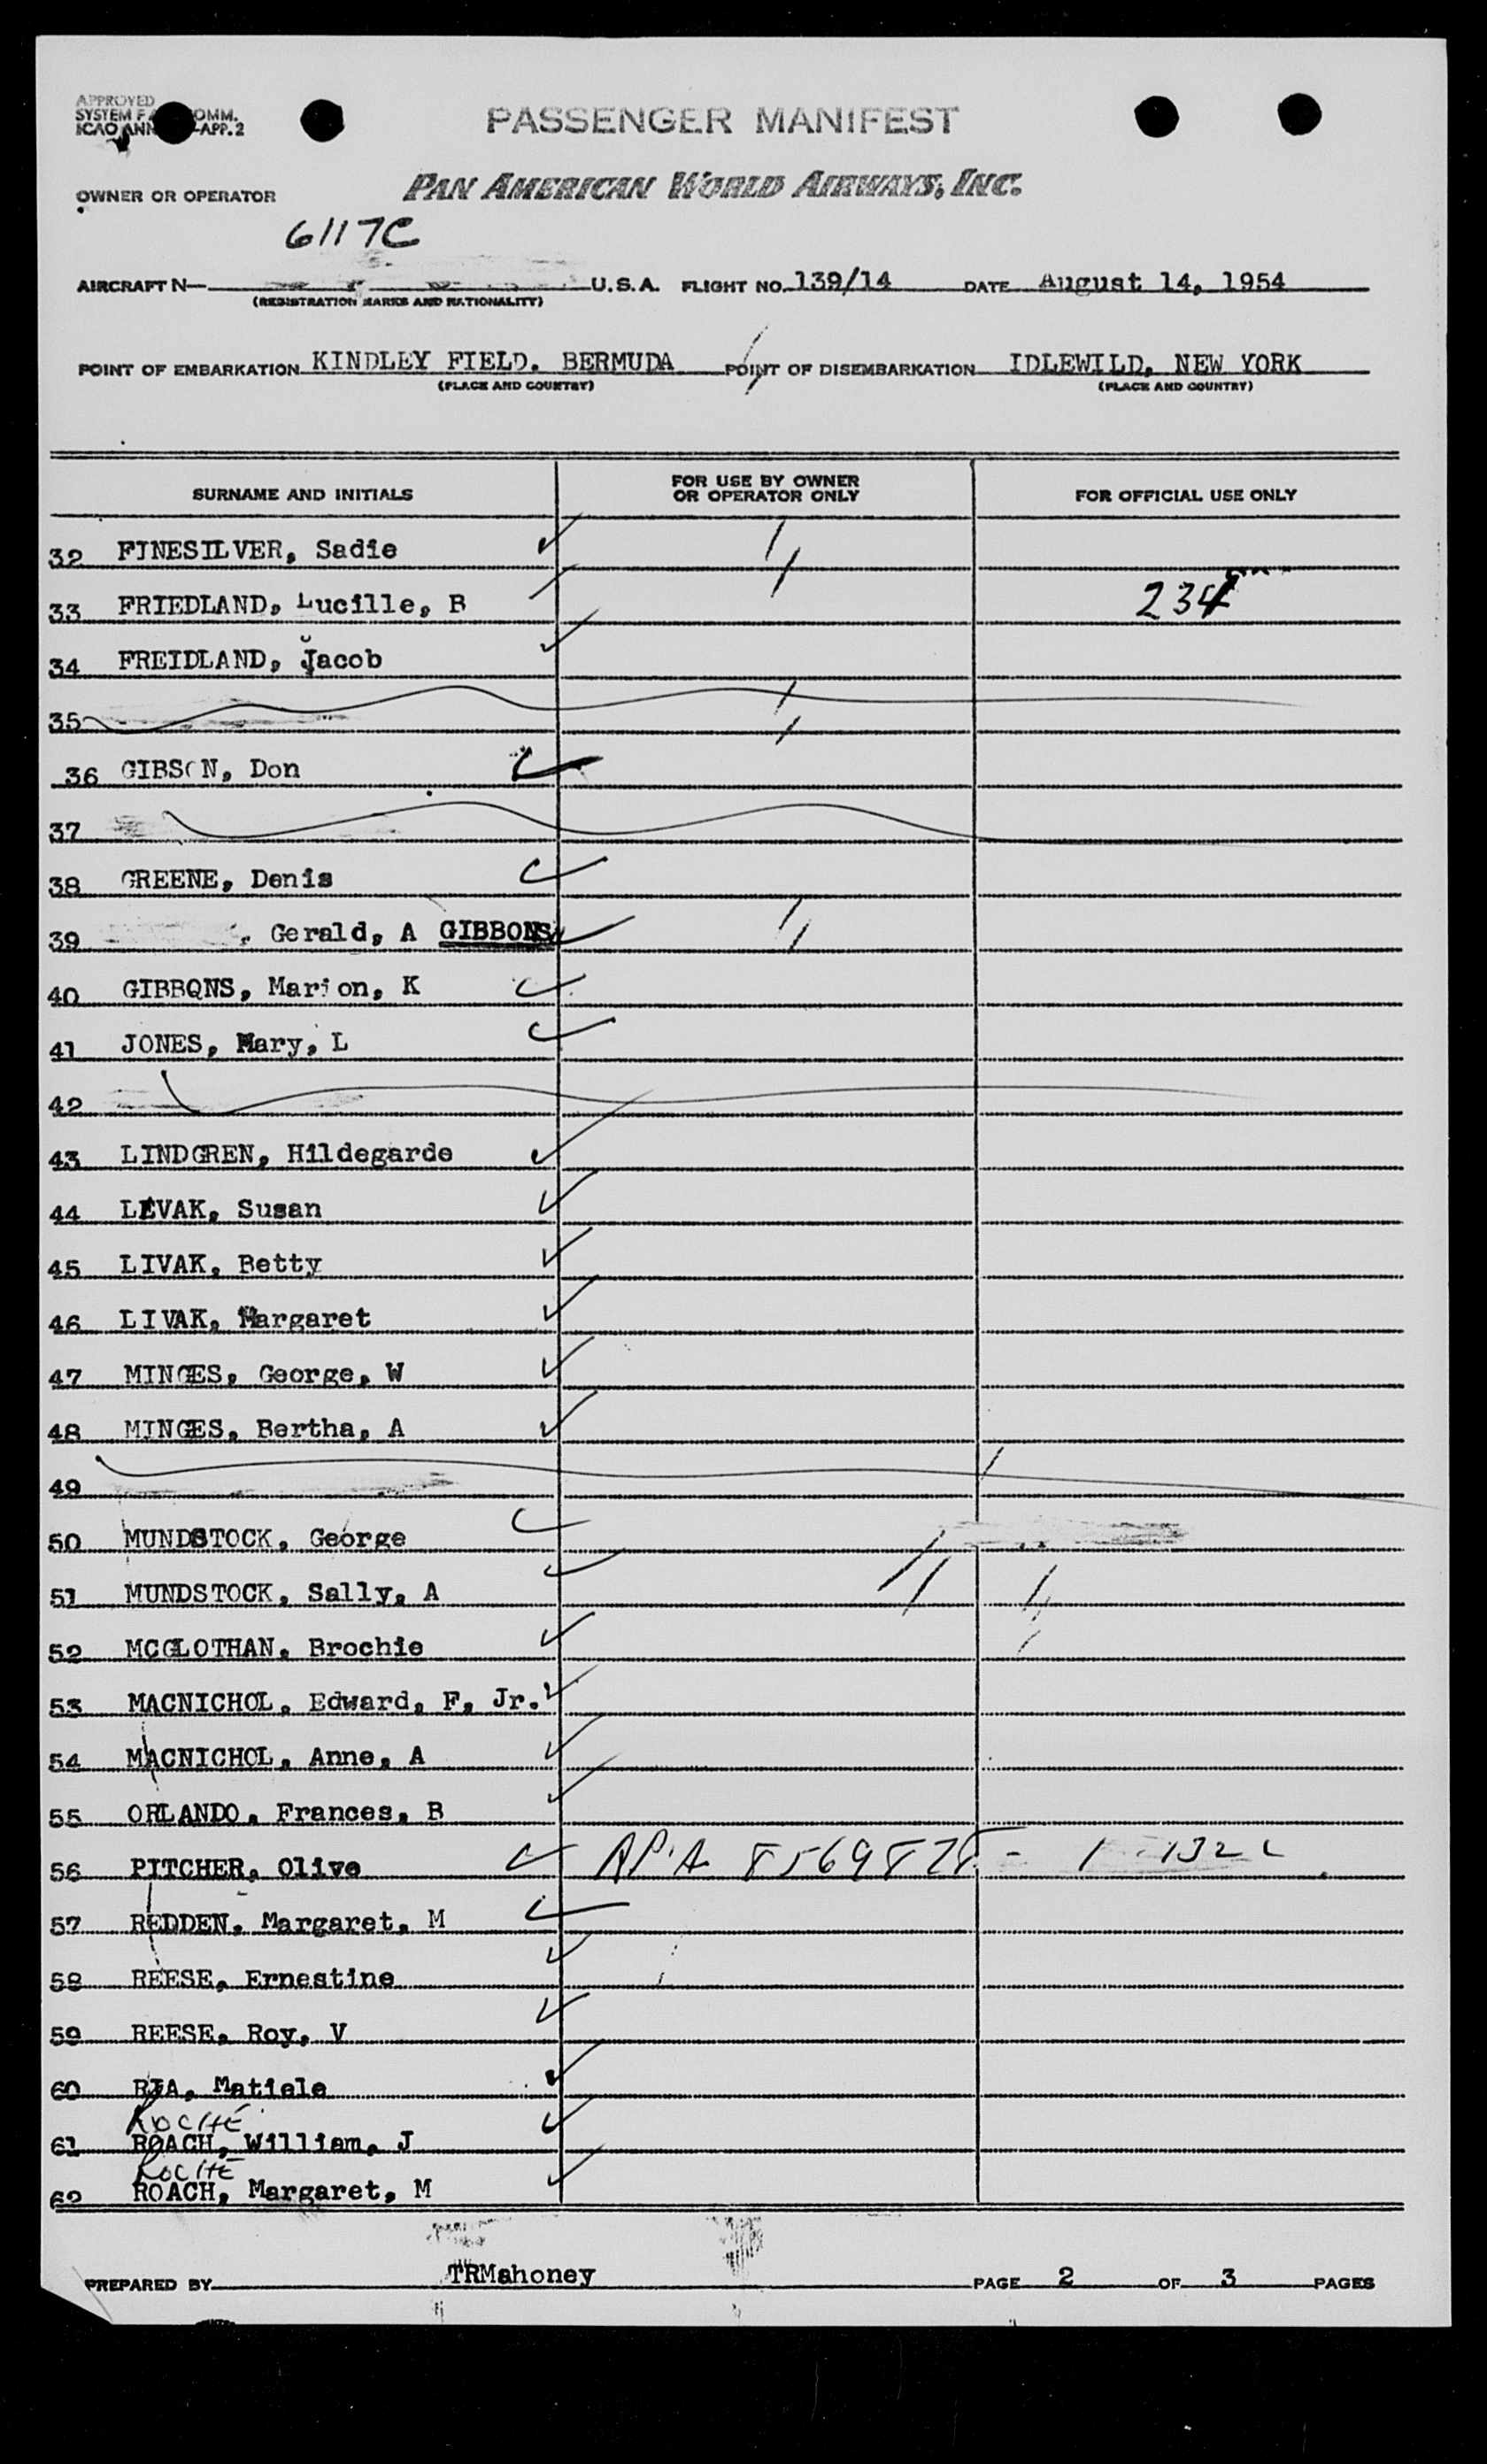 APPROVED
SYSTEM F COMM.
ICAO ANN -APP. 2
PASSENGER MANIFEST
OWNER OR OPERATOR PAN AMERICAN WORLD AIRWAYS, INC.
6117C
AIRCRAFT N— U.S.A. FLIGHT NO. 139/14 DATE August 14, 1954
(REGISTRATION MARKS AND NATIONALITY)
POINT OF EMBARKATION KINDLEY FIELD. BERMUDA POINT OF DISEMBARKATION IDLEWILD, NEW YORK
(PLACE AND COUNTRY) (PLACE AND COUNTRY)
SURNAME AND INITIALS FOR USE BY OWNER OR OPERATOR ONLY FOR OFFICIAL USE ONLY
32 FINESILVER, Sadie
33 FRIEDLAND, Lucille, B 234
34 FREIDLAND, Jacob
35
36 GIBSON, Don
37
38 GREENE, Denis
39 , Gerald, A GIBBONS
40 GIBBONS, Marion, K
41 JONES, Mary, L
42
43 LINDGREN, Hildegarde
44 LIVAK, Susan
45 LIVAK, Betty
46 LIVAK, Margaret
47 MINGES, George, W
48 MINGES, Bertha, A
49
50 MUNDSTOCK, George
51 MUNDSTOCK, Sally, A
52 MCGLOTHAN, Brochie
53 MACNICHOL, Edward, F, Jr.
54 MACNICHOL, Anne, A
55 ORLANDO, Frances, B
56 PITCHER, Olive
57 REDDEN, Margaret, M
58 REESE, Ernestine
59 REESE, Roy, V
60 RIA, Matiele
ROCHE
61 ROACH, William, J
ROCHE
62 ROACH, Margaret, M
PREPARED BY TRMahoney PAGE 2 OF 3 PAGES